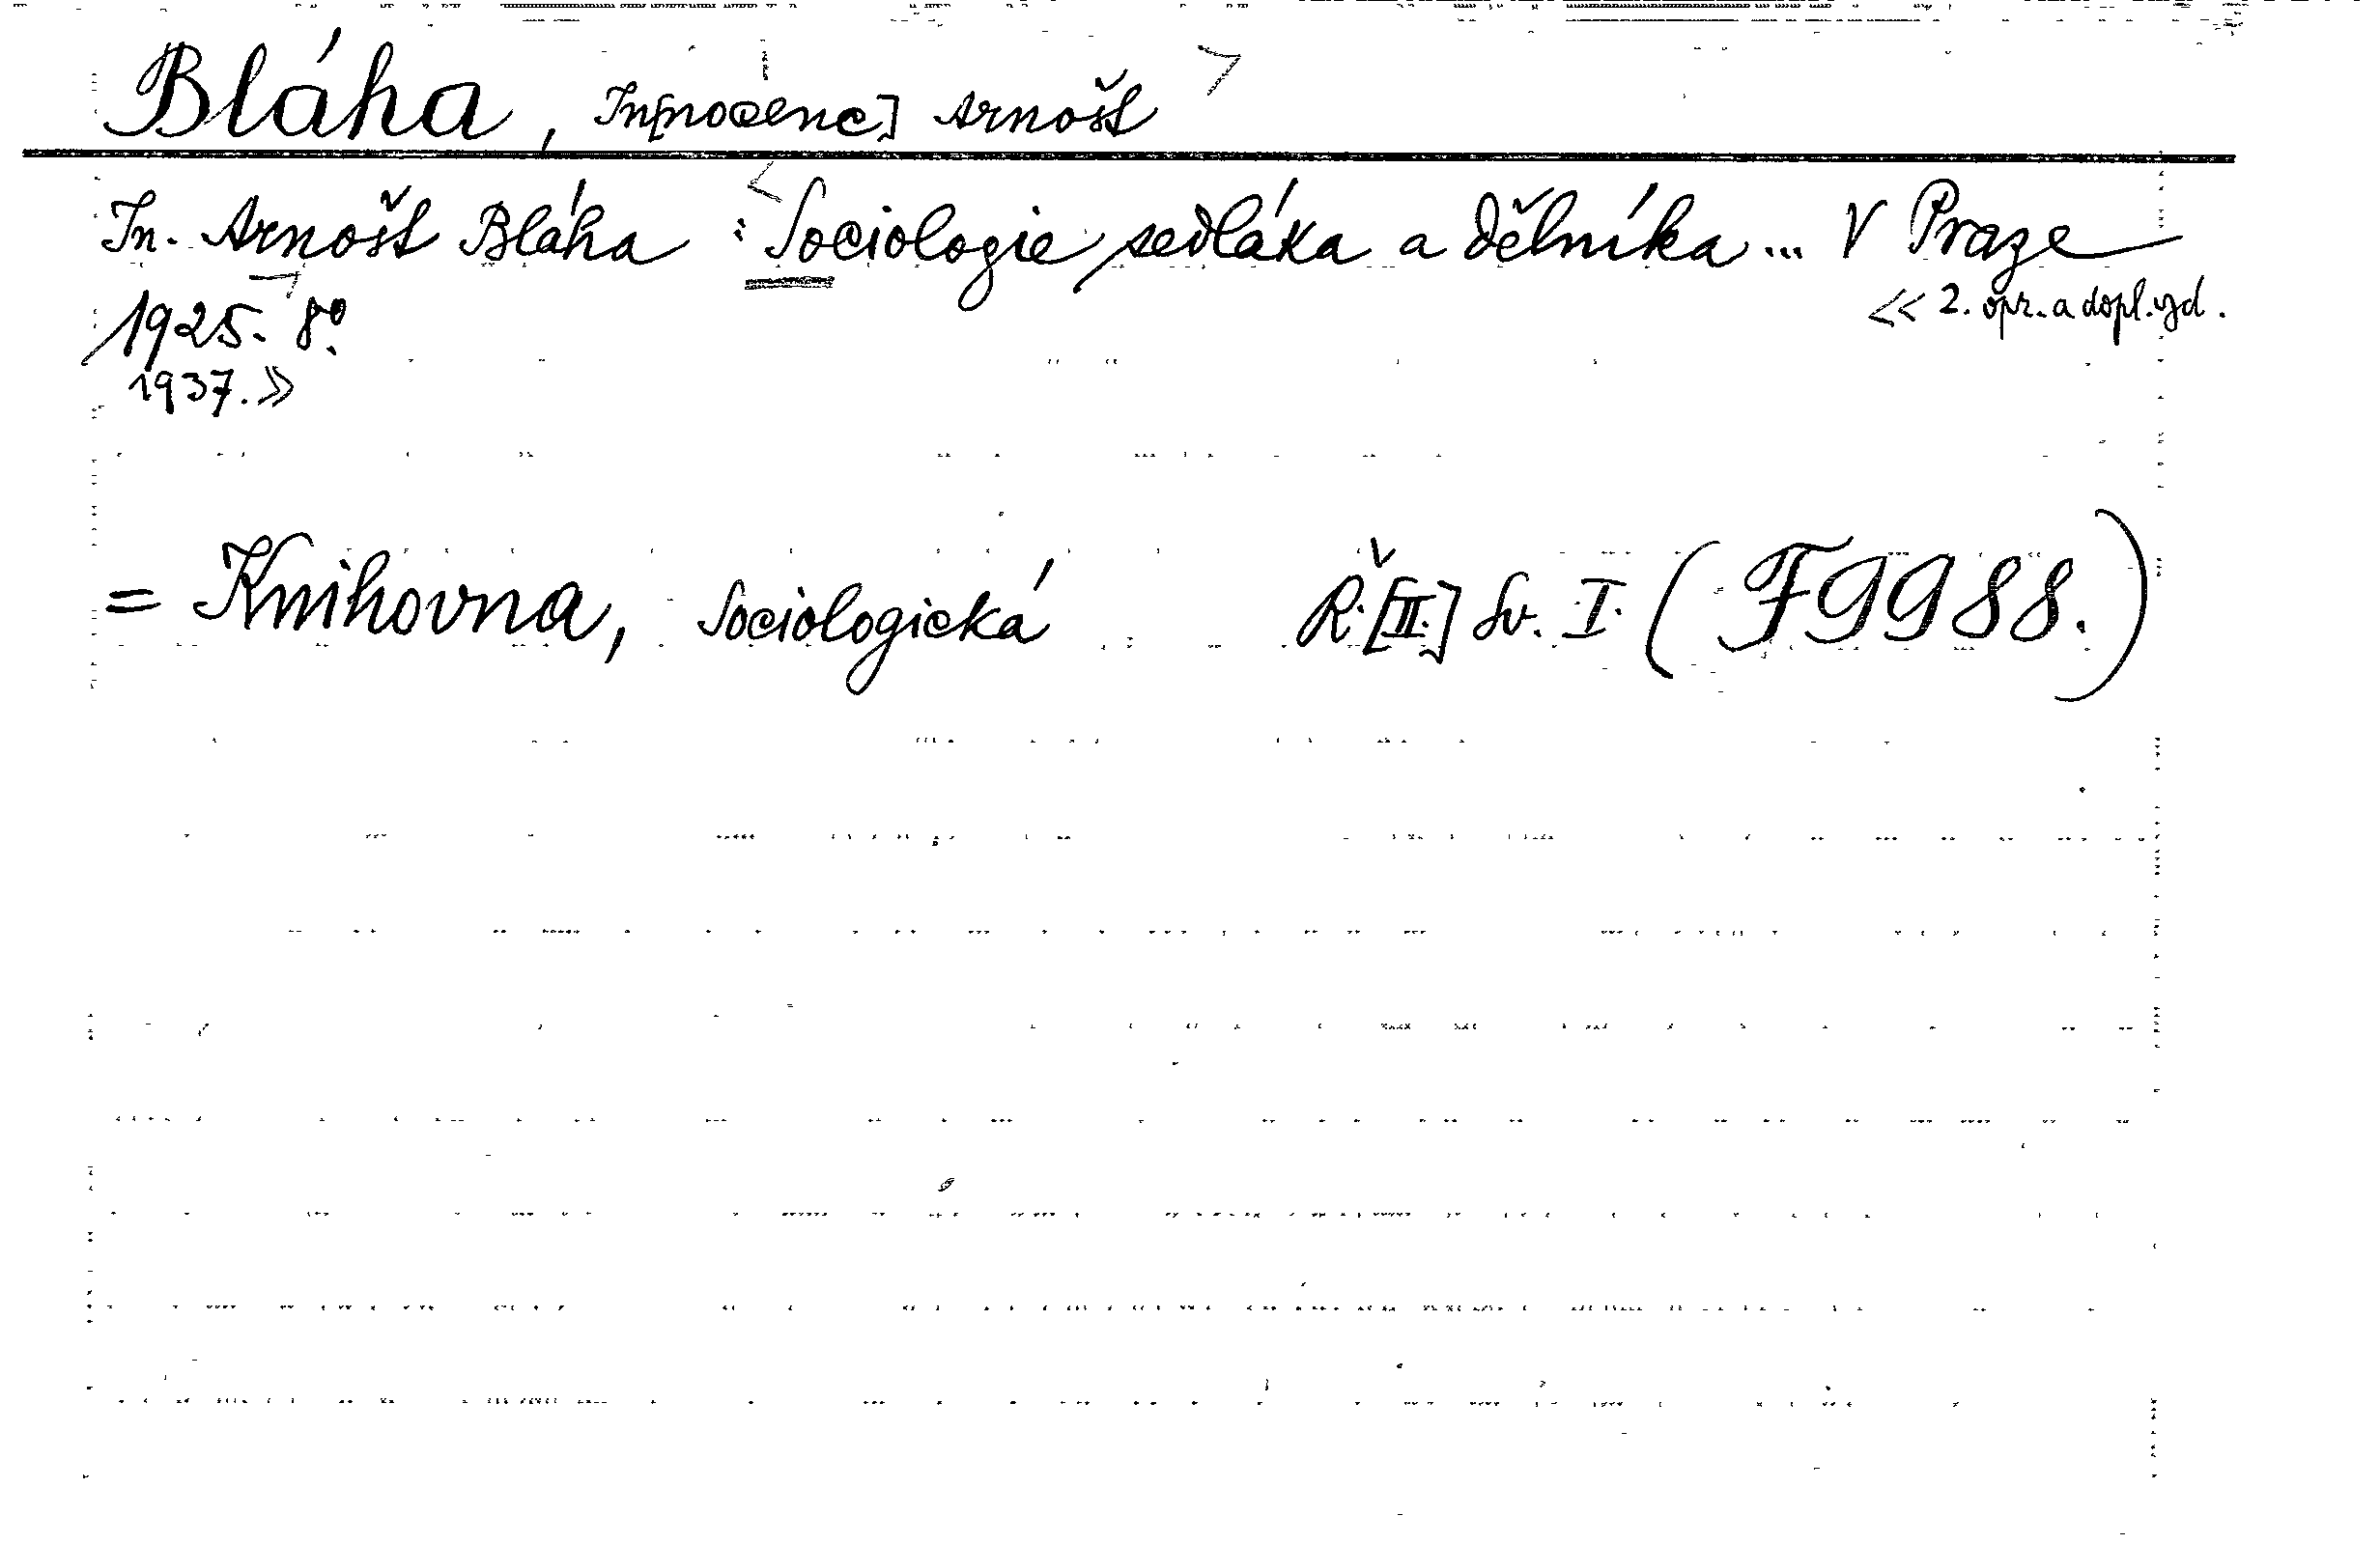 Bláha, In[nocenc] Arnošt
In. Arnošt Bláha : Sociologie sedláka a dělníka... V Praze
<< 2. opr. a dopl. vyd.
1925. 8º.
1937. >>
= Knihovna, Sociologická Ř. [II.] Sv. I. (F 9988.)